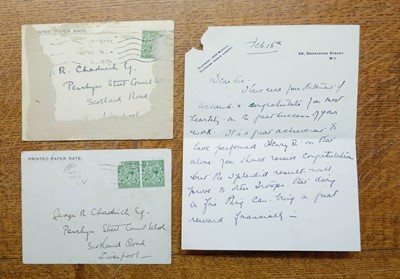 PRINTED PAPER RATE.
R. Chadwick Esq.
Penrhyn Street Council
Scotland Road
Liverpool
PRINTED PAPER RATE.
George R Chadwick Esq.
Penrhyn Street Council School
Scotland Road
Liverpool
Feb. 18th
GROSVENOR STREET
W.1.
Dear Sir
I have seen your statement of
accounts & congratulate you most
heartily on the great success of your
work. It is a great achievement to
have performed Henry V on that
alone you should receive congratulations
but the splendid results will
prove to other Troops that doing
a fine thing can bring a great
reward financially